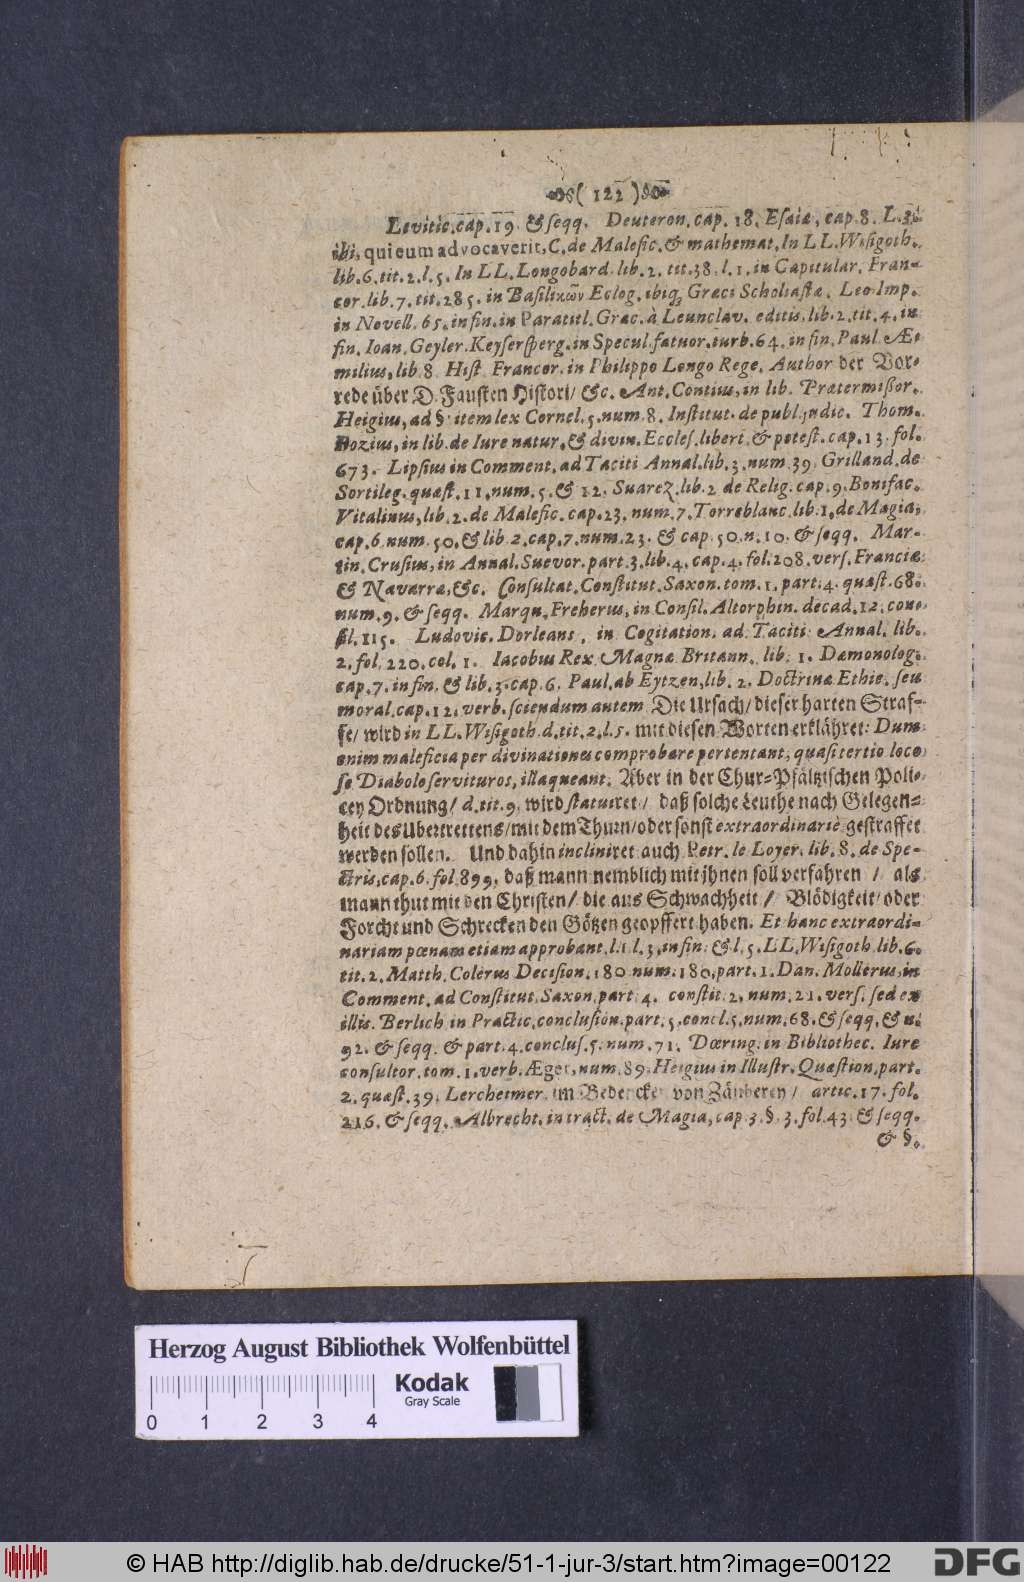 ( 122 )
Levitic. cap. 19. & ſeqq. Deuteron. cap. 18. Eſaiæ, cap. 8. L. 3.
ibi, qui eum advocaverit, C. de Malefic. & mathemat. In LL. Wiſigoth.
lib. 6. tit. 2. l. 5. In LL. Longobard. lib. 2. tit. 38. l. 1. in Capitular. Fran-
cor. lib. 7. tit. 285. in Baſilικῶν Eclog. ibiq; Græci Scholiaſtæ. Leo Imp.
in Novell. 65. in fin. in Paratitl. Græc. à Leunclav. editis, lib. 2. tit. 4. in
fin. Ioan. Geyler. Keyſerſperg. in Specul. fatuor. turb. 64. in fin. Paul. Æ-
milius, lib. 8. Hiſt. Francor. in Philippo Longo Rege. Author der Vor-
rede über D. Fauſten Hiſtori/ &c. Ant. Contius, in lib. Prætermiſſor.
Heigius, ad §. item lex Cornel. 5. num. 8. Inſtitut. de publ. judic. Thom.
Bozius, in lib. de Iure natur. & divin. Eccleſ. libert. & poteſt. cap. 13. fol.
673. Lipſius in Comment. ad Taciti Annal. lib. 3. num. 39. Grilland. de
Sortileg. quæſt. 11. num. 5. & 12. Suarez. lib. 2 de Relig. cap. 9. Bonifac.
Vitalinus, lib. 2. de Malefic. cap. 23. num. 7. Torreblanc. lib. 1. de Magia,
cap. 6. num. 50. & lib. 2. cap. 7. num. 23. & cap. 50. n. 10. & ſeqq. Mar-
tin. Cruſius, in Annal. Suevor. part. 3. lib. 4. cap. 4. fol. 208. verſ. Franciæ
& Navarræ, &c. Conſultat. Conſtitut. Saxon. tom. 1. part. 4. quæſt. 68.
num. 9. & ſeqq. Marqu. Freherus, in Conſil. Altorphin. decad. 12. con-
ſil. 115. Ludovic. Dorleans, in Cogitation. ad Taciti Annal. lib.
2. fol. 220. col. 1. Iacobus Rex Magnæ Britann. lib. 1. Dæmonolog.
cap. 7. in fin. & lib. 3. cap. 6. Paul. ab Eytzen, lib. 2. Doctrinæ Ethic. ſeu
moral. cap. 12. verb. ſciendum autem. Die Urſach/ dieſer harten Straf-
fe/ wird in LL. Wiſigoth. d. tit. 2. l. 5. mit dieſen Worten erklähret: Dum
enim maleficia per divinationes comprobare pertentant, quaſi tertio loco
ſe Diabolo ſervituros, illaqueant. Aber in der Chur-Pfältziſchen Poli-
cey Ordnung/ d. tit. 9. wird ſtatuiret/ daß ſolche Leuthe nach Gelegen-
heit des Ubertrettens/ mit dem Thurn/ oder ſonſt extraordinariè geſtraffet
werden ſollen. Und dahin incliniret auch Petr. le Loyer. lib. 8. de Spe-
ctris, cap. 6. fol. 899. daß mann nemblich mit jhnen ſoll verfahren / als
mann thut mit den Chriſten/ die aus Schwachheit / Blödigkeit/ oder
Forcht und Schrecken den Götzen geopffert haben. Et hanc extraordi-
nariam pœnam etiam approbant. l. 1. l. 3. in fin. & l. 5. LL. Wiſigoth. lib. 6.
tit. 2. Matth. Colerus Deciſion. 180. num. 180. part. 1. Dan. Mollerus, in
Comment. ad Conſtitut. Saxon. part. 4. conſtit. 2. num. 21. verſ. ſed ex
illis. Berlich. in Practic. concluſion. part. 5. concl. 5. num. 68. & ſeqq. & n.
92. & ſeqq. & part. 4. concluſ. 5. num. 71. Dœring. in Bibliothec. Iure
conſultor. tom. 1. verb. Æger, num. 89. Heigius in Illuſtr. Quæſtion. part.
2. quæſt. 39. Lercheimer. im Bedencken von Zäuberey/ artic. 17. fol.
216. & ſeqq. Albrecht. in tract. de Magia, cap. 3. §. 3. fol. 43. & ſeqq.
& §.
Herzog August Bibliothek Wolfenbüttel
Kodak
Gray Scale
0 1 2 3 4
© HAB http://diglib.hab.de/drucke/51-1-jur-3/start.htm?image=00122
DFG